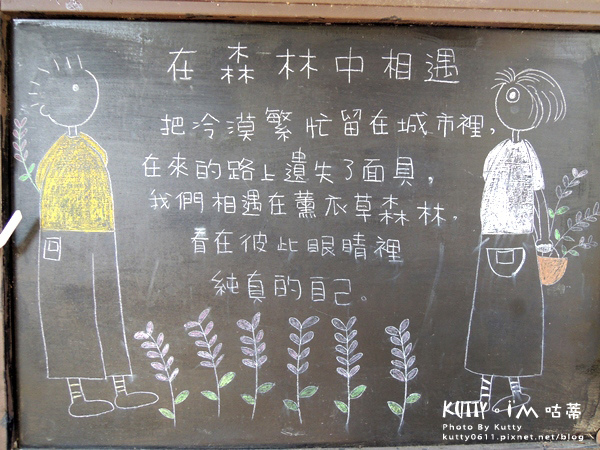 在森林中相遇
把冷漠繁忙留在城市裡，
在來的路上遺失了面具，
我們相遇在薰衣草森林，
看在彼此眼睛裡
純真的自己。
KUTTY · i'M 咕蒂
Photo By Kutty
kutty0611.pixnet.net/blog